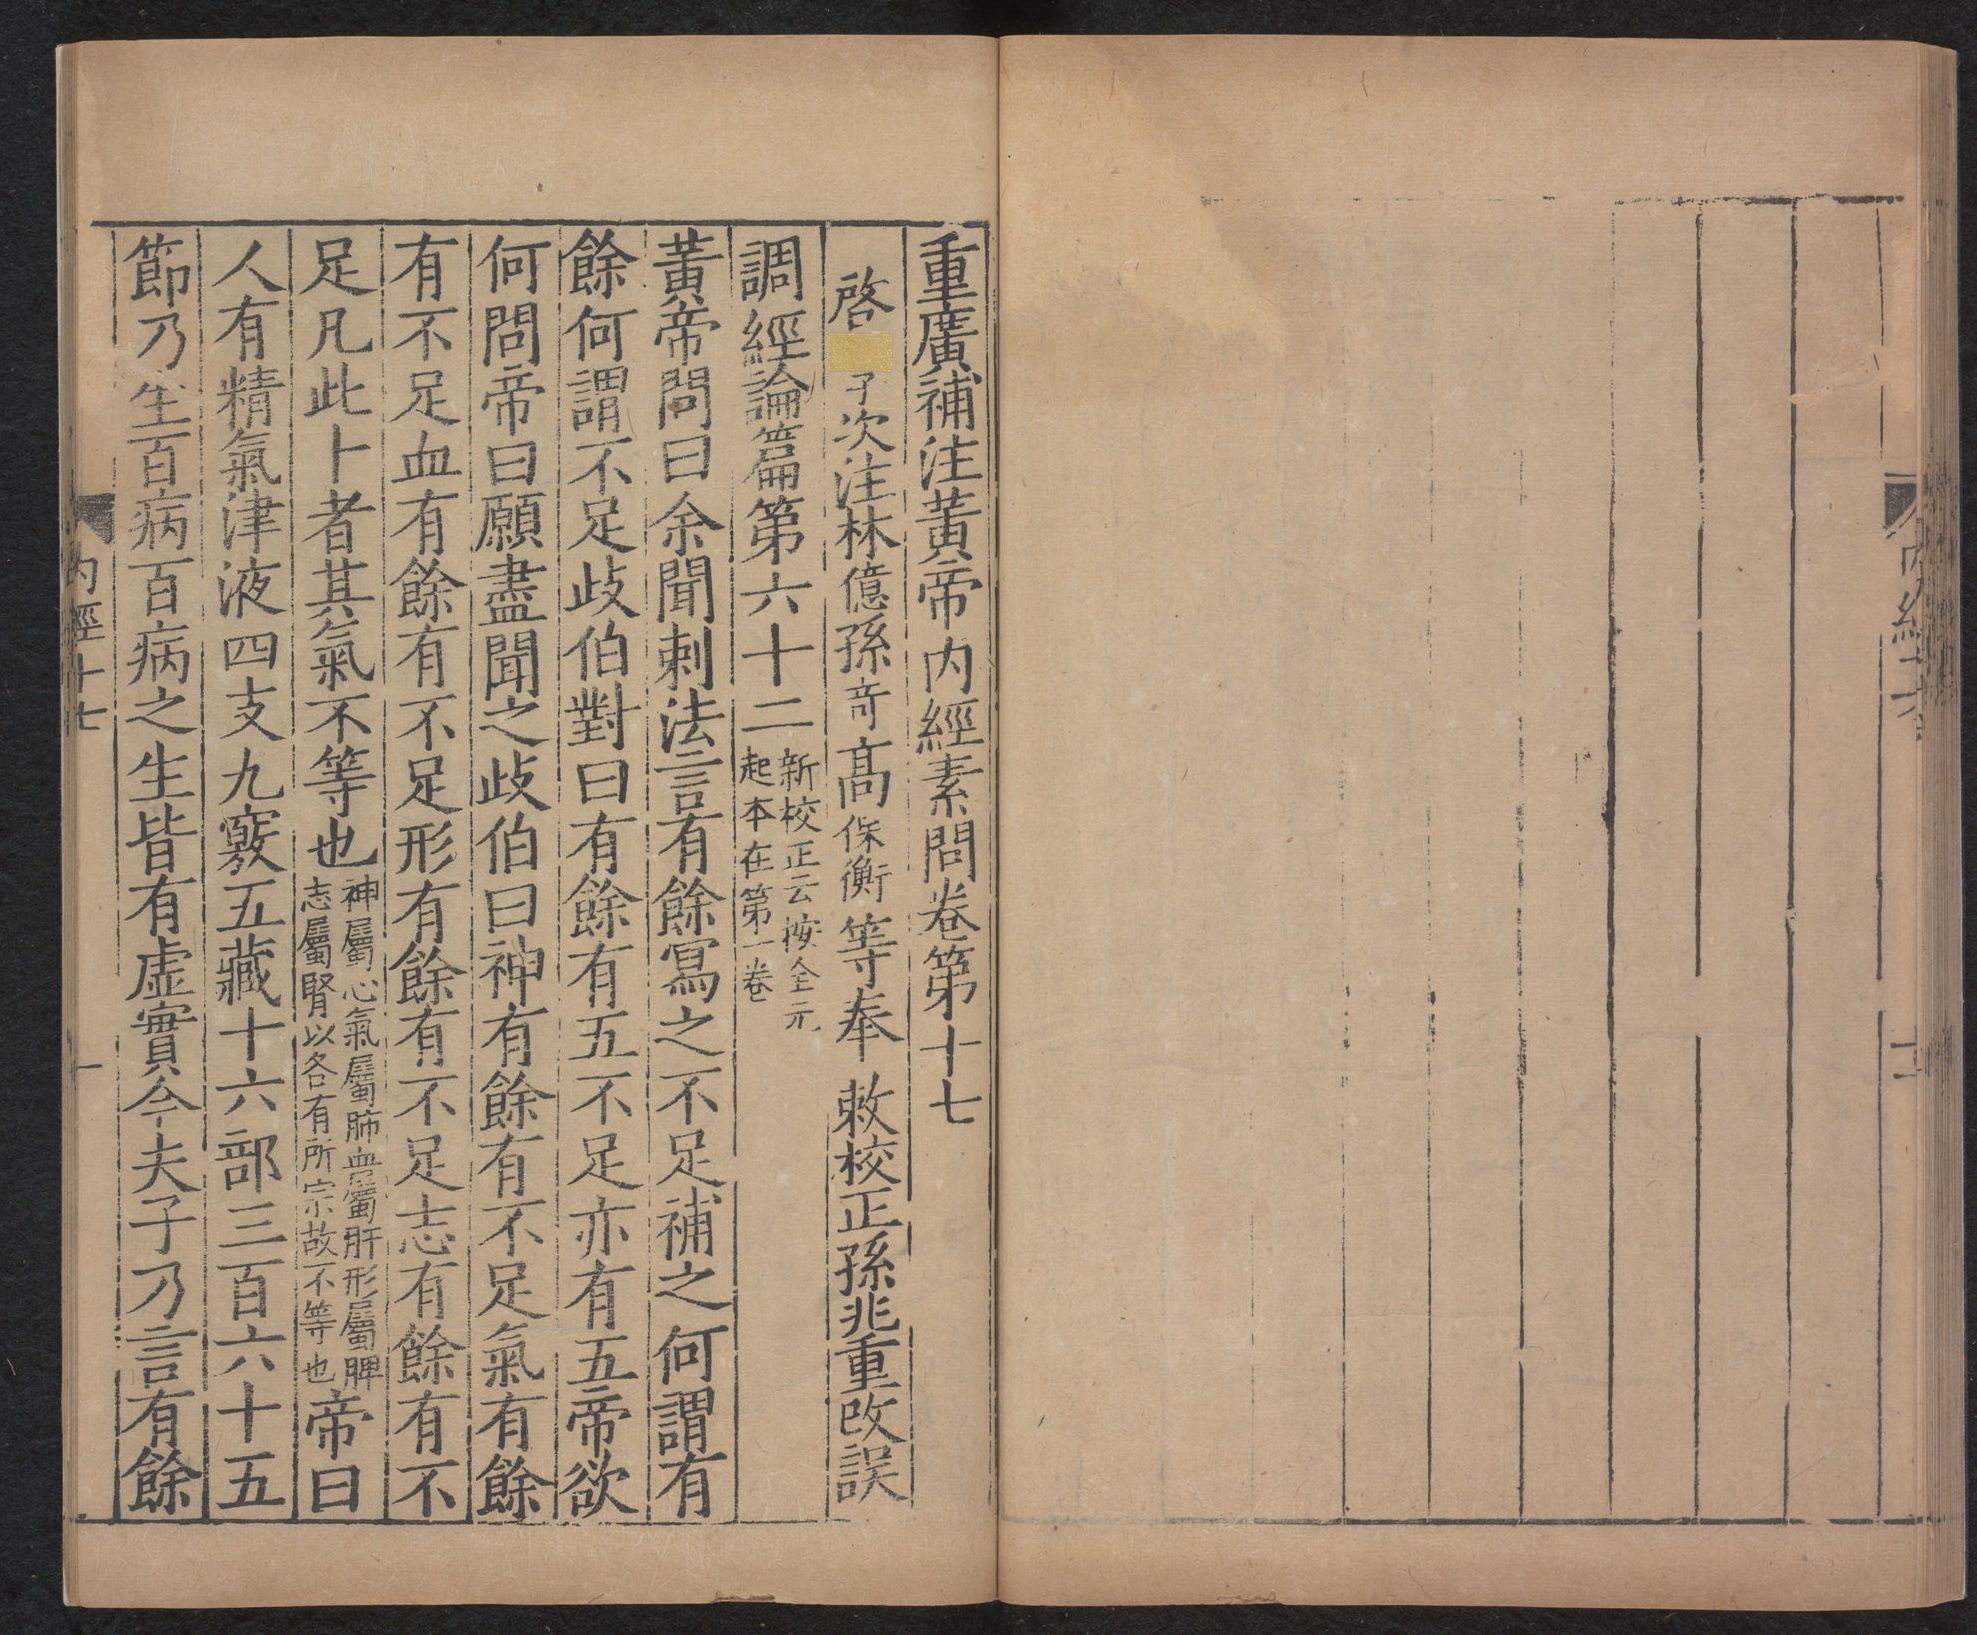 重廣補注黃帝内經素問卷第十七
啓子次注林億孫竒髙保衡等奉敕校正孫兆重改誤
調經論篇第六十二新校正云按全元起本在第一卷
黃帝問曰余聞刺法言有餘寫之不足補之何謂有
餘何謂不足歧伯對曰有餘有五不足亦有五帝欲
何問帝曰願盡聞之歧伯曰神有餘有不足氣有餘
有不足血有餘有不足形有餘有不足志有餘有不
足凡此十者其氣不等也神屬心氣屬肺血屬肝形屬脾志屬腎以各有所宗故不等也帝曰
人有精氣津液四支九竅五藏十六部三百六十五
節乃生百病百病之生皆有虛實今夫子乃言有餘
内經十七
一